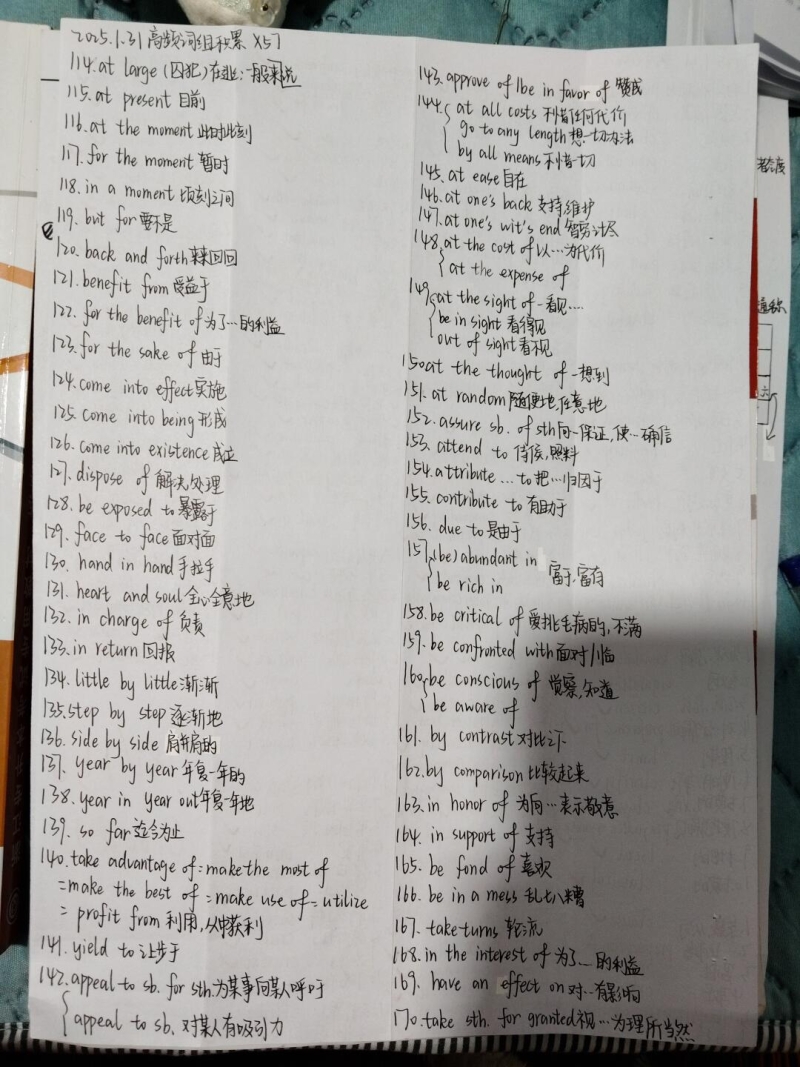 2025.1.31 高频词组积累 X57
114. at large (囚犯)在逃; 一般来说
115. at present 目前
116. at the moment 此时此刻
117. for the moment 暂时
118. in a moment 顷刻之间
119. but for 要不是
120. back and forth 来来回回
121. benefit from 受益于
122. for the benefit of 为了…的利益
123. for the sake of 由于
124. come into effect 实施
125. come into being 形成
126. come into existence 成立
127. dispose of 解决,处理
128. be exposed to 暴露于
129. face to face 面对面
130. hand in hand 手拉手
131. heart and soul 全心全意地
132. in charge of 负责
133. in return 回报
134. little by little 渐渐
135. step by step 逐渐地
136. side by side 肩并肩的
137. year by year 年复一年的
138. year in year out 年复一年地
139. so far 迄今为止
140. take advantage of = make the most of
= make the best of = make use of = utilize
= profit from 利用,从中获利
141. yield to 让步于
142. appeal to sb. for sth. 为某事向某人呼吁
appeal to sb. 对某人有吸引力
143. approve of / be in favor of 赞成
144. at all costs 不惜任何代价
go to any length 想一切办法
by all means 不惜一切
145. at ease 自在
146. at one's back 支持,维护
147. at one's wit's end 智穷计尽
148. at the cost of 以…为代价
at the expense of
149. at the sight of 一看见…
be in sight 看得见
out of sight 看不见
150. at the thought of 一想到
151. at random 随便地,任意地
152. assure sb. of sth 向…保证,使…确信
153. attend to 侍候,照料
154. attribute … to 把…归因于
155. contribute to 有助于
156. due to 是由于
157. (be) abundant in 富于,富有
be rich in
158. be critical of 爱挑毛病的,不满
159. be confronted with 面对/临
160. be conscious of 觉察,知道
be aware of
161. by contrast 对比之下
162. by comparison 比较起来
163. in honor of 为向…表示敬意
164. in support of 支持
165. be fond of 喜欢
166. be in a mess 乱七八糟
167. take turns 轮流
168. in the interest of 为了…的利益
169. have an effect on 对…有影响
170. take sth. for granted 视…为理所当然